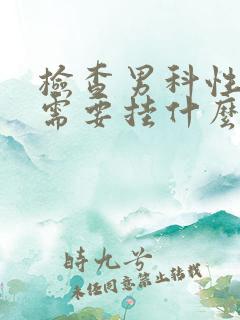 檢查男科性
需要挂什麽
時九兮
未經同意禁止轉載